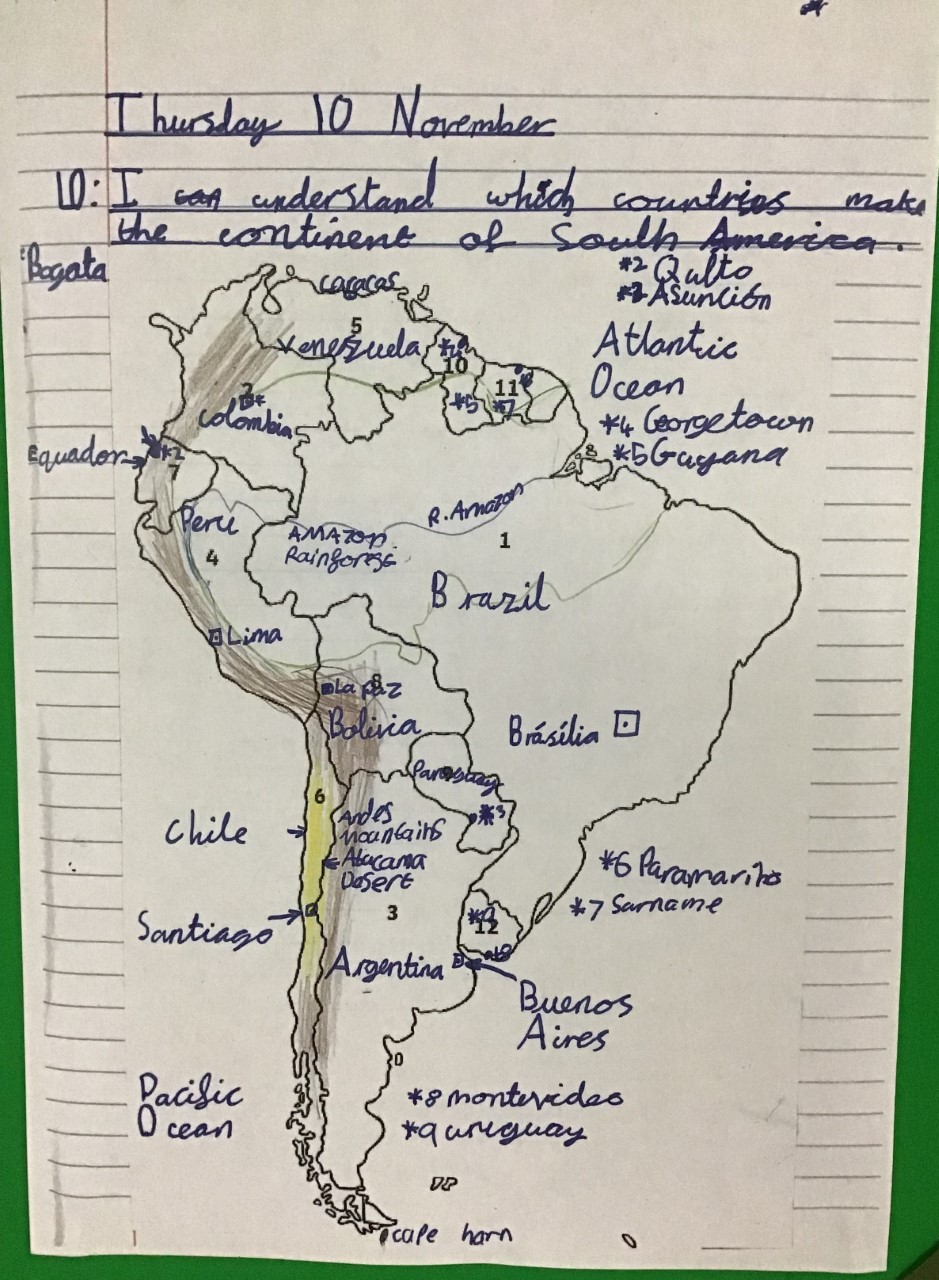 Thursday 10 November
LO: I can understand which countries make
the continent of South America.
Bogata
*2 Qulto
*3 Asunción
caracas
5
Venezuela
*4
10
Atlantic
Ocean
11
6
*5
*7
2
Colombia
*4 Georgetown
*5 Guyana
8
Equador
*2
7
Peru
4
R. Amazon
AMAzon
Rainforest
1
Brazil
Lima
La paz
8
Bolivia
Brásília
Paraguay
6
*3
Chile
Andes
mountains
Atacama
Desert
*6 Paramarito
*7 Sarname
3
*9
12
Santiago
*8
Argentina
Buenos
Aires
Pacific
Ocean
*8 montevideo
*9 uruguay
cape harn